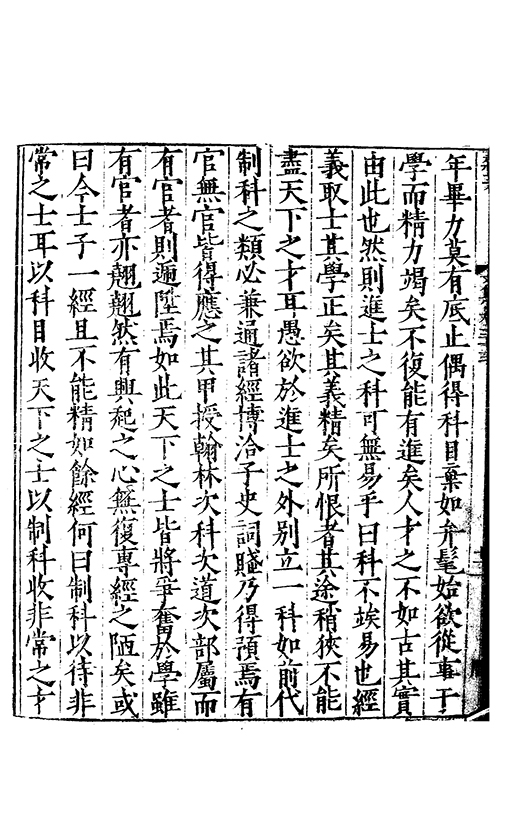 年畢力莫有底止偶得科目棄如弁髦始欲從事于
學而精力竭矣不復能有進矣人才之不如古其實
由此也然則進士之科可無易乎曰科不竢易也經
義取士其學正矣其義精矣所恨者其途稍狹不能
盡天下之才耳愚欲於進士之外別立一科如前代
制科之類必兼通諸經博洽子史詞賦乃得預焉有
官無官皆得應之其甲授翰林次科次道次部屬而
有官者則遞陞焉如此天下之士皆將爭奮於學雖
有官者亦翹翹然有興起之心無復專經之陋矣或
曰今士子一經且不能精如餘經何曰制科以待非
常之士耳以科目收天下之士以制科收非常之才